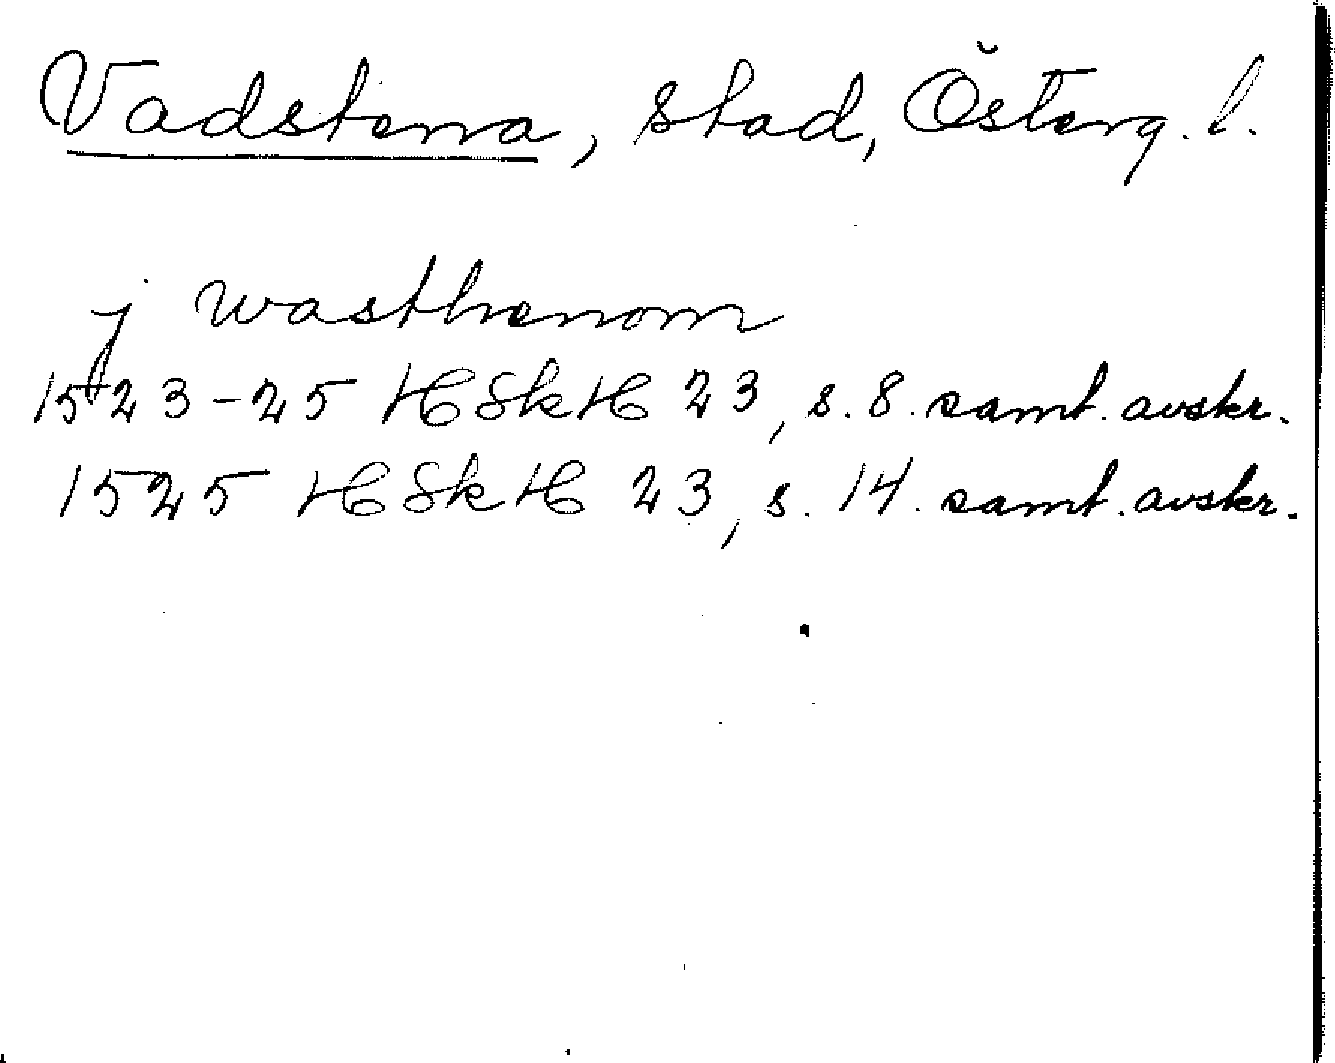 Vadstena, stad, Österg. l.
j wasthenom
1523-25 HSkH 23, s. 8. samt. avskr.
1525 HSkH 23, s. 14. samt. avskr.